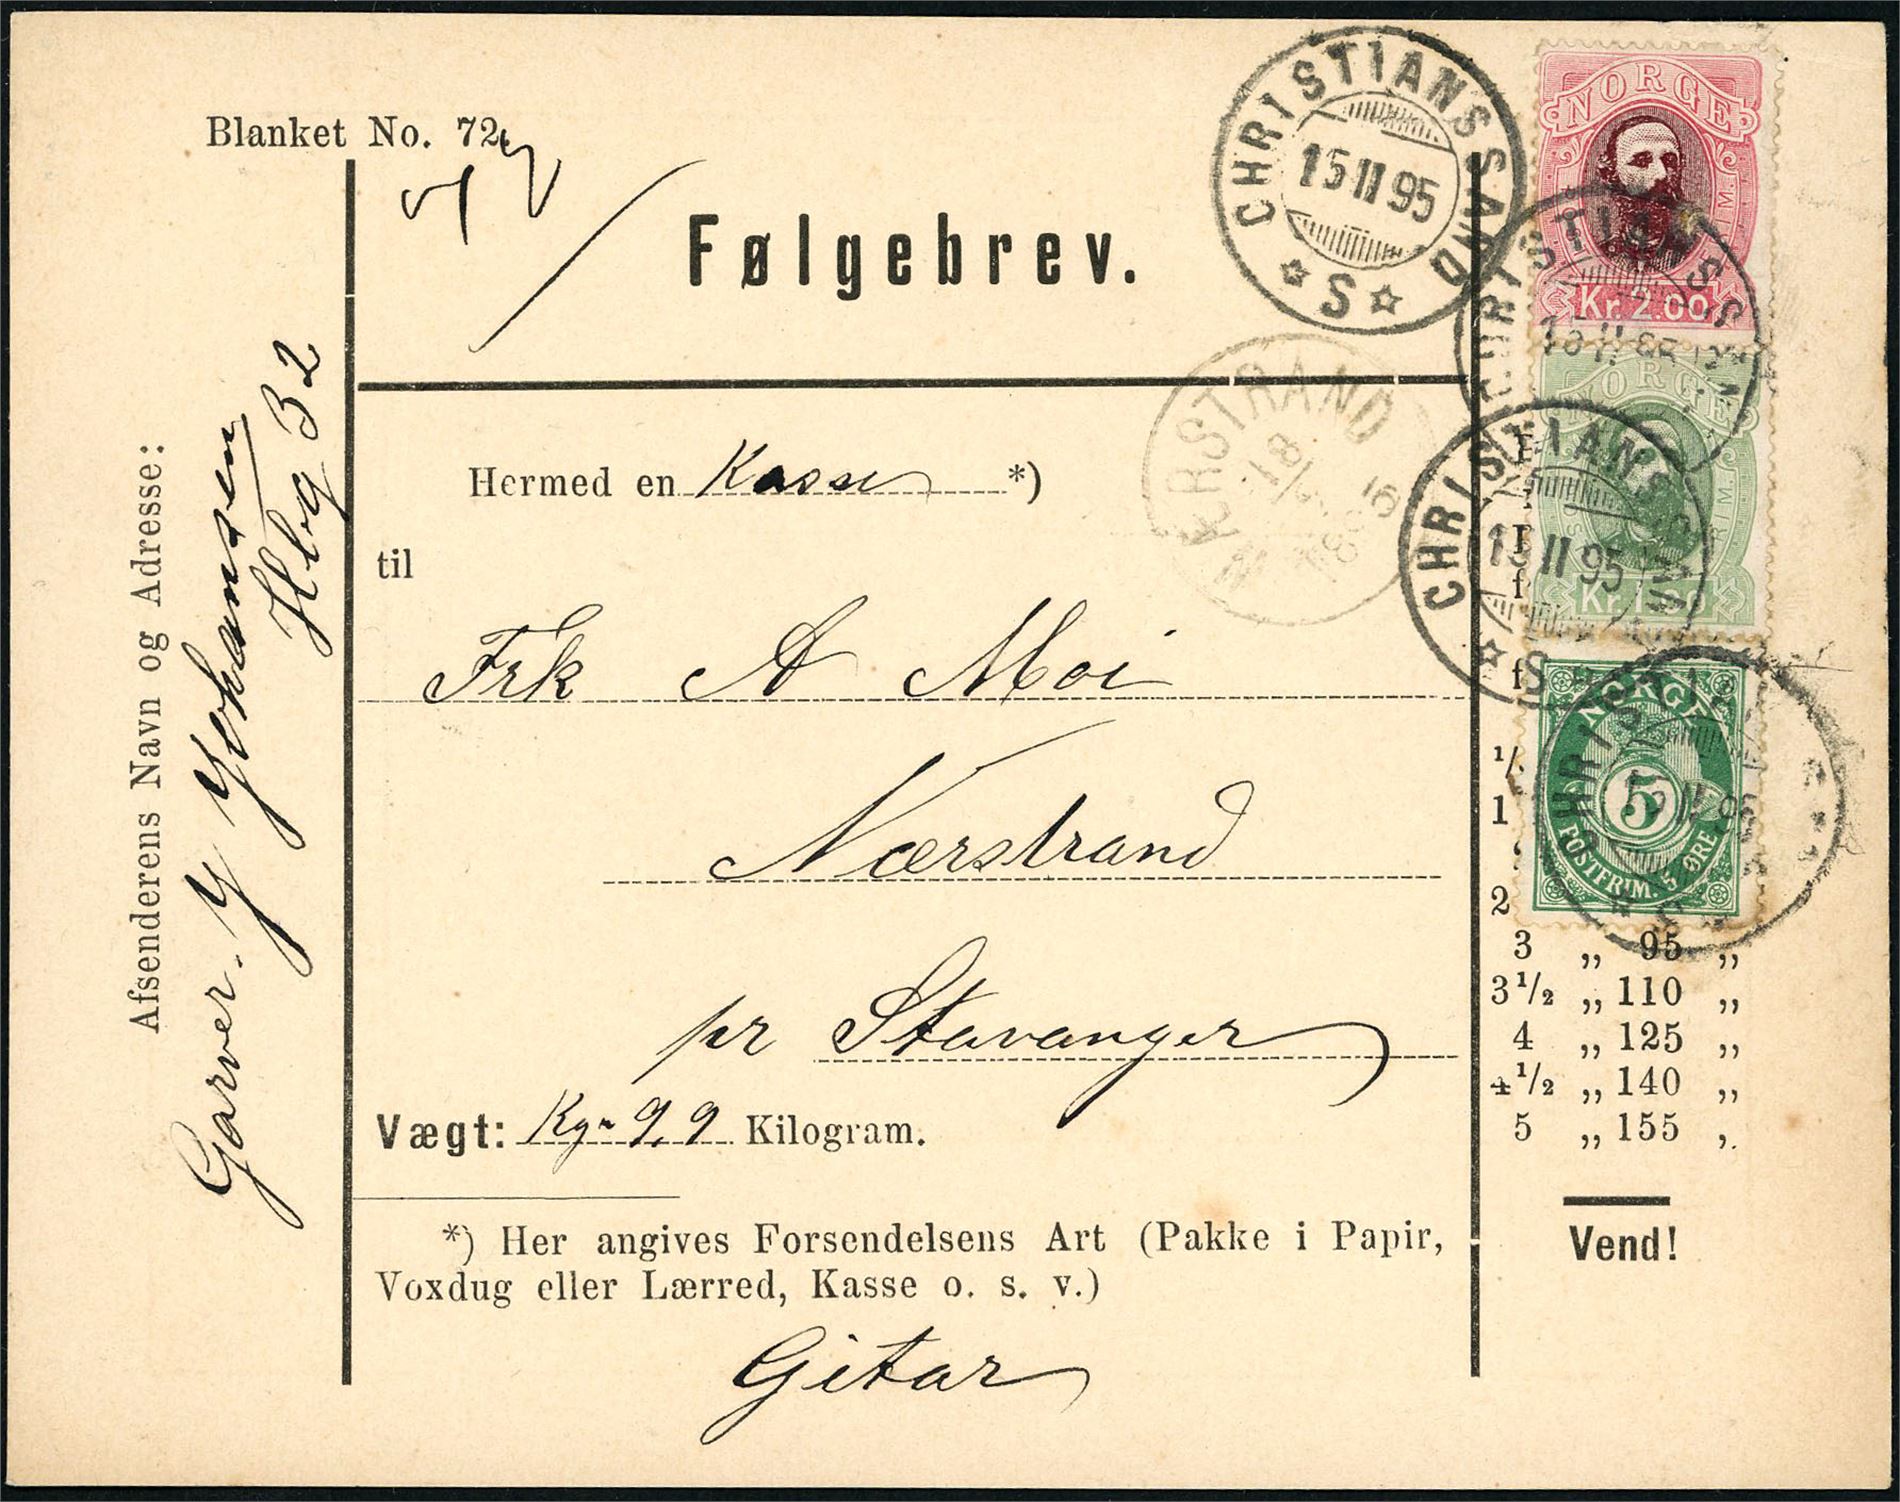 Blanket No. 72.
Følgebrev.
CHRISTIANSSAND
15 II 95
S
NORGE
Kr. 2.00
NORGE
CHRISTIANSSAND
15 II 95
S
NÆRSTRAND
18
NORGE
5
POSTFRIM. 5 ØRE
Afsenderens Navn og Adresse:
Garver. Y Yohansen
Hbg 32
Hermed en Kasse *)
til
Frk A Moi
Nærstrand
pr Stavanger
Vægt: Kgr 9,9 Kilogram.
*) Her angives Forsendelsens Art (Pakke i Papir,
Voxdug eller Lærred, Kasse o. s. v.)
Gitar
1
2
3 „ 95 „
3 1/2 „ 110 „
4 „ 125 „
4 1/2 „ 140 „
5 „ 155 „
Vend!